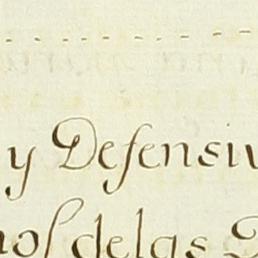 y Defensiv
nos delas